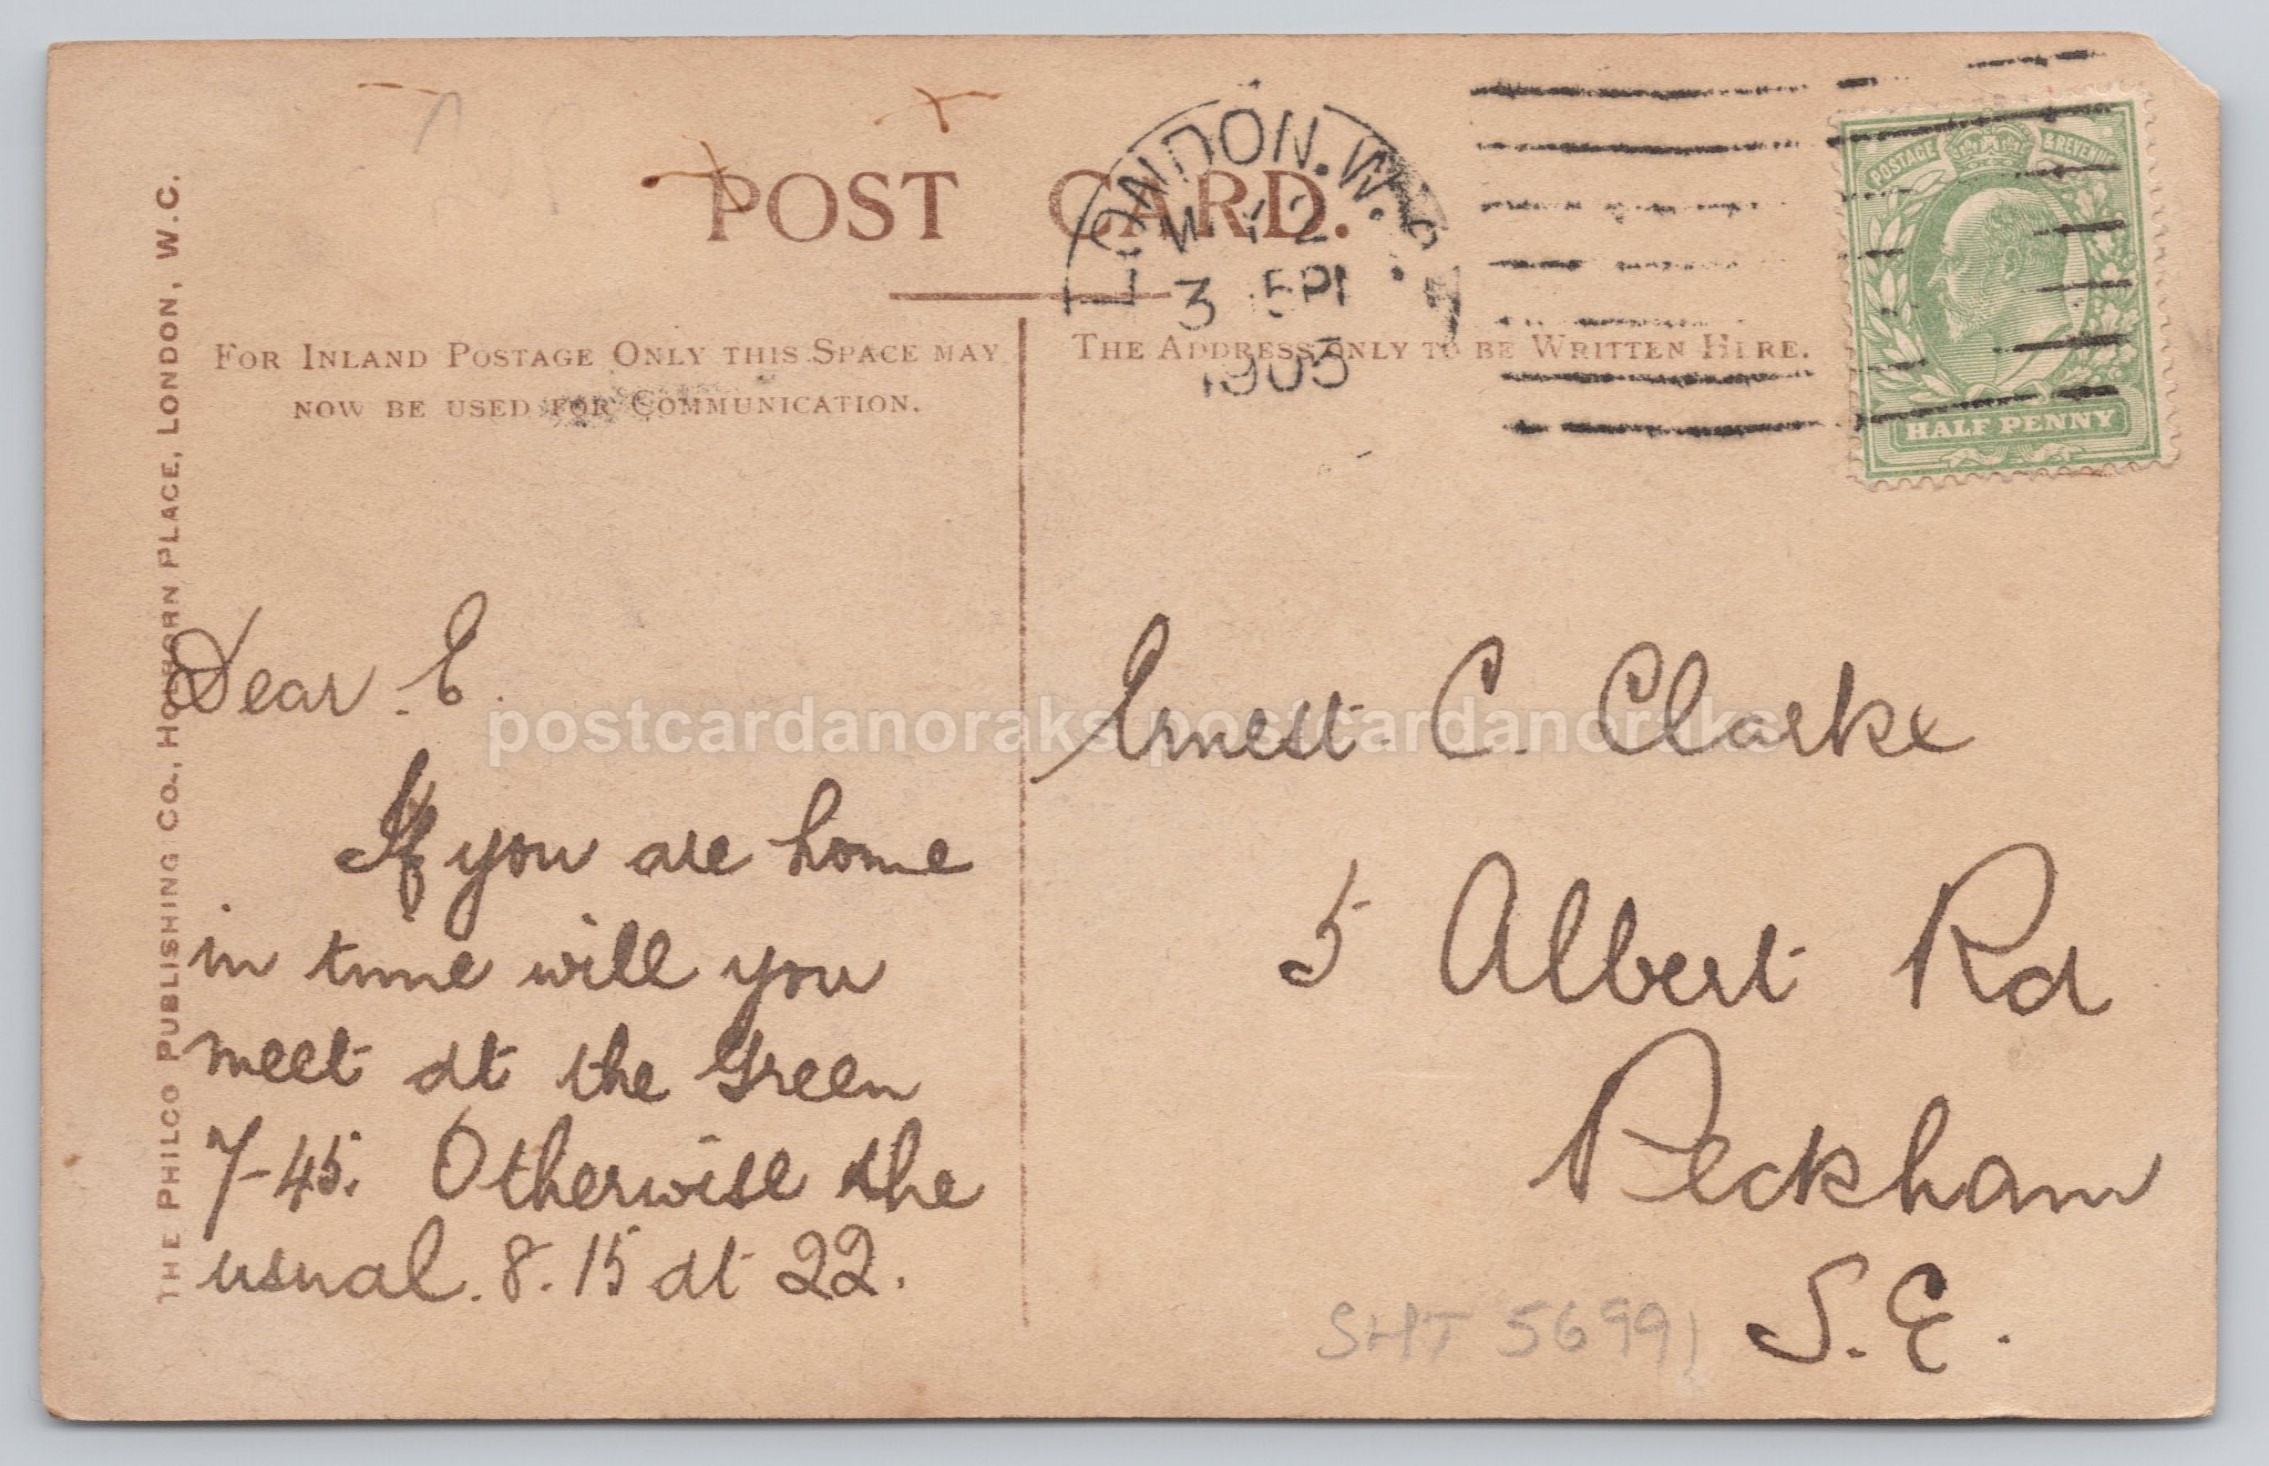 POST CARD.
LONDON. W.
3
1903
POSTAGE & REVENUE
HALF PENNY
FOR INLAND POSTAGE ONLY THIS SPACE MAY
NOW BE USED FOR COMMUNICATION.
THE ADDRESS ONLY TO BE WRITTEN HERE.
THE PHILCO PUBLISHING CO., HOLBORN PLACE, LONDON, W.C.
Dear E.
If you are home
in time will you
meet at the Green
7-45. Otherwise the
usual. 8.15 at 22.
Ernest C. Clarke
5 Albert Rd
Peckham
S.E.
SHT 5699
postcardanoraks postcardanoraks